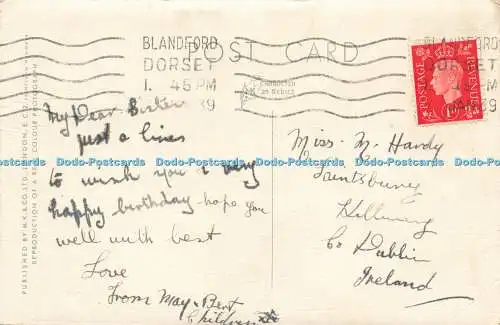 BLANDFORD
DORSET
1. 45 PM
39
BLANDFORD
DORSET
39
POST CARD
POSTAGE
REVENUE
My Dear Sister
just a lines
to wish you a very
happy birthday hope you
well with best
Love
From May & Bert
Children
Miss. M. Hardy
Saintsbury
Killiney
Co Dublin
Ireland
PUBLISHED BY
REPRODUCTION OF A REAL COLOUR PHOTOGRAPH
Dodo-Postcards Dodo-Postcards Dodo-Postcards Dodo-Postcards Dodo-Postcards Dodo-Postcards